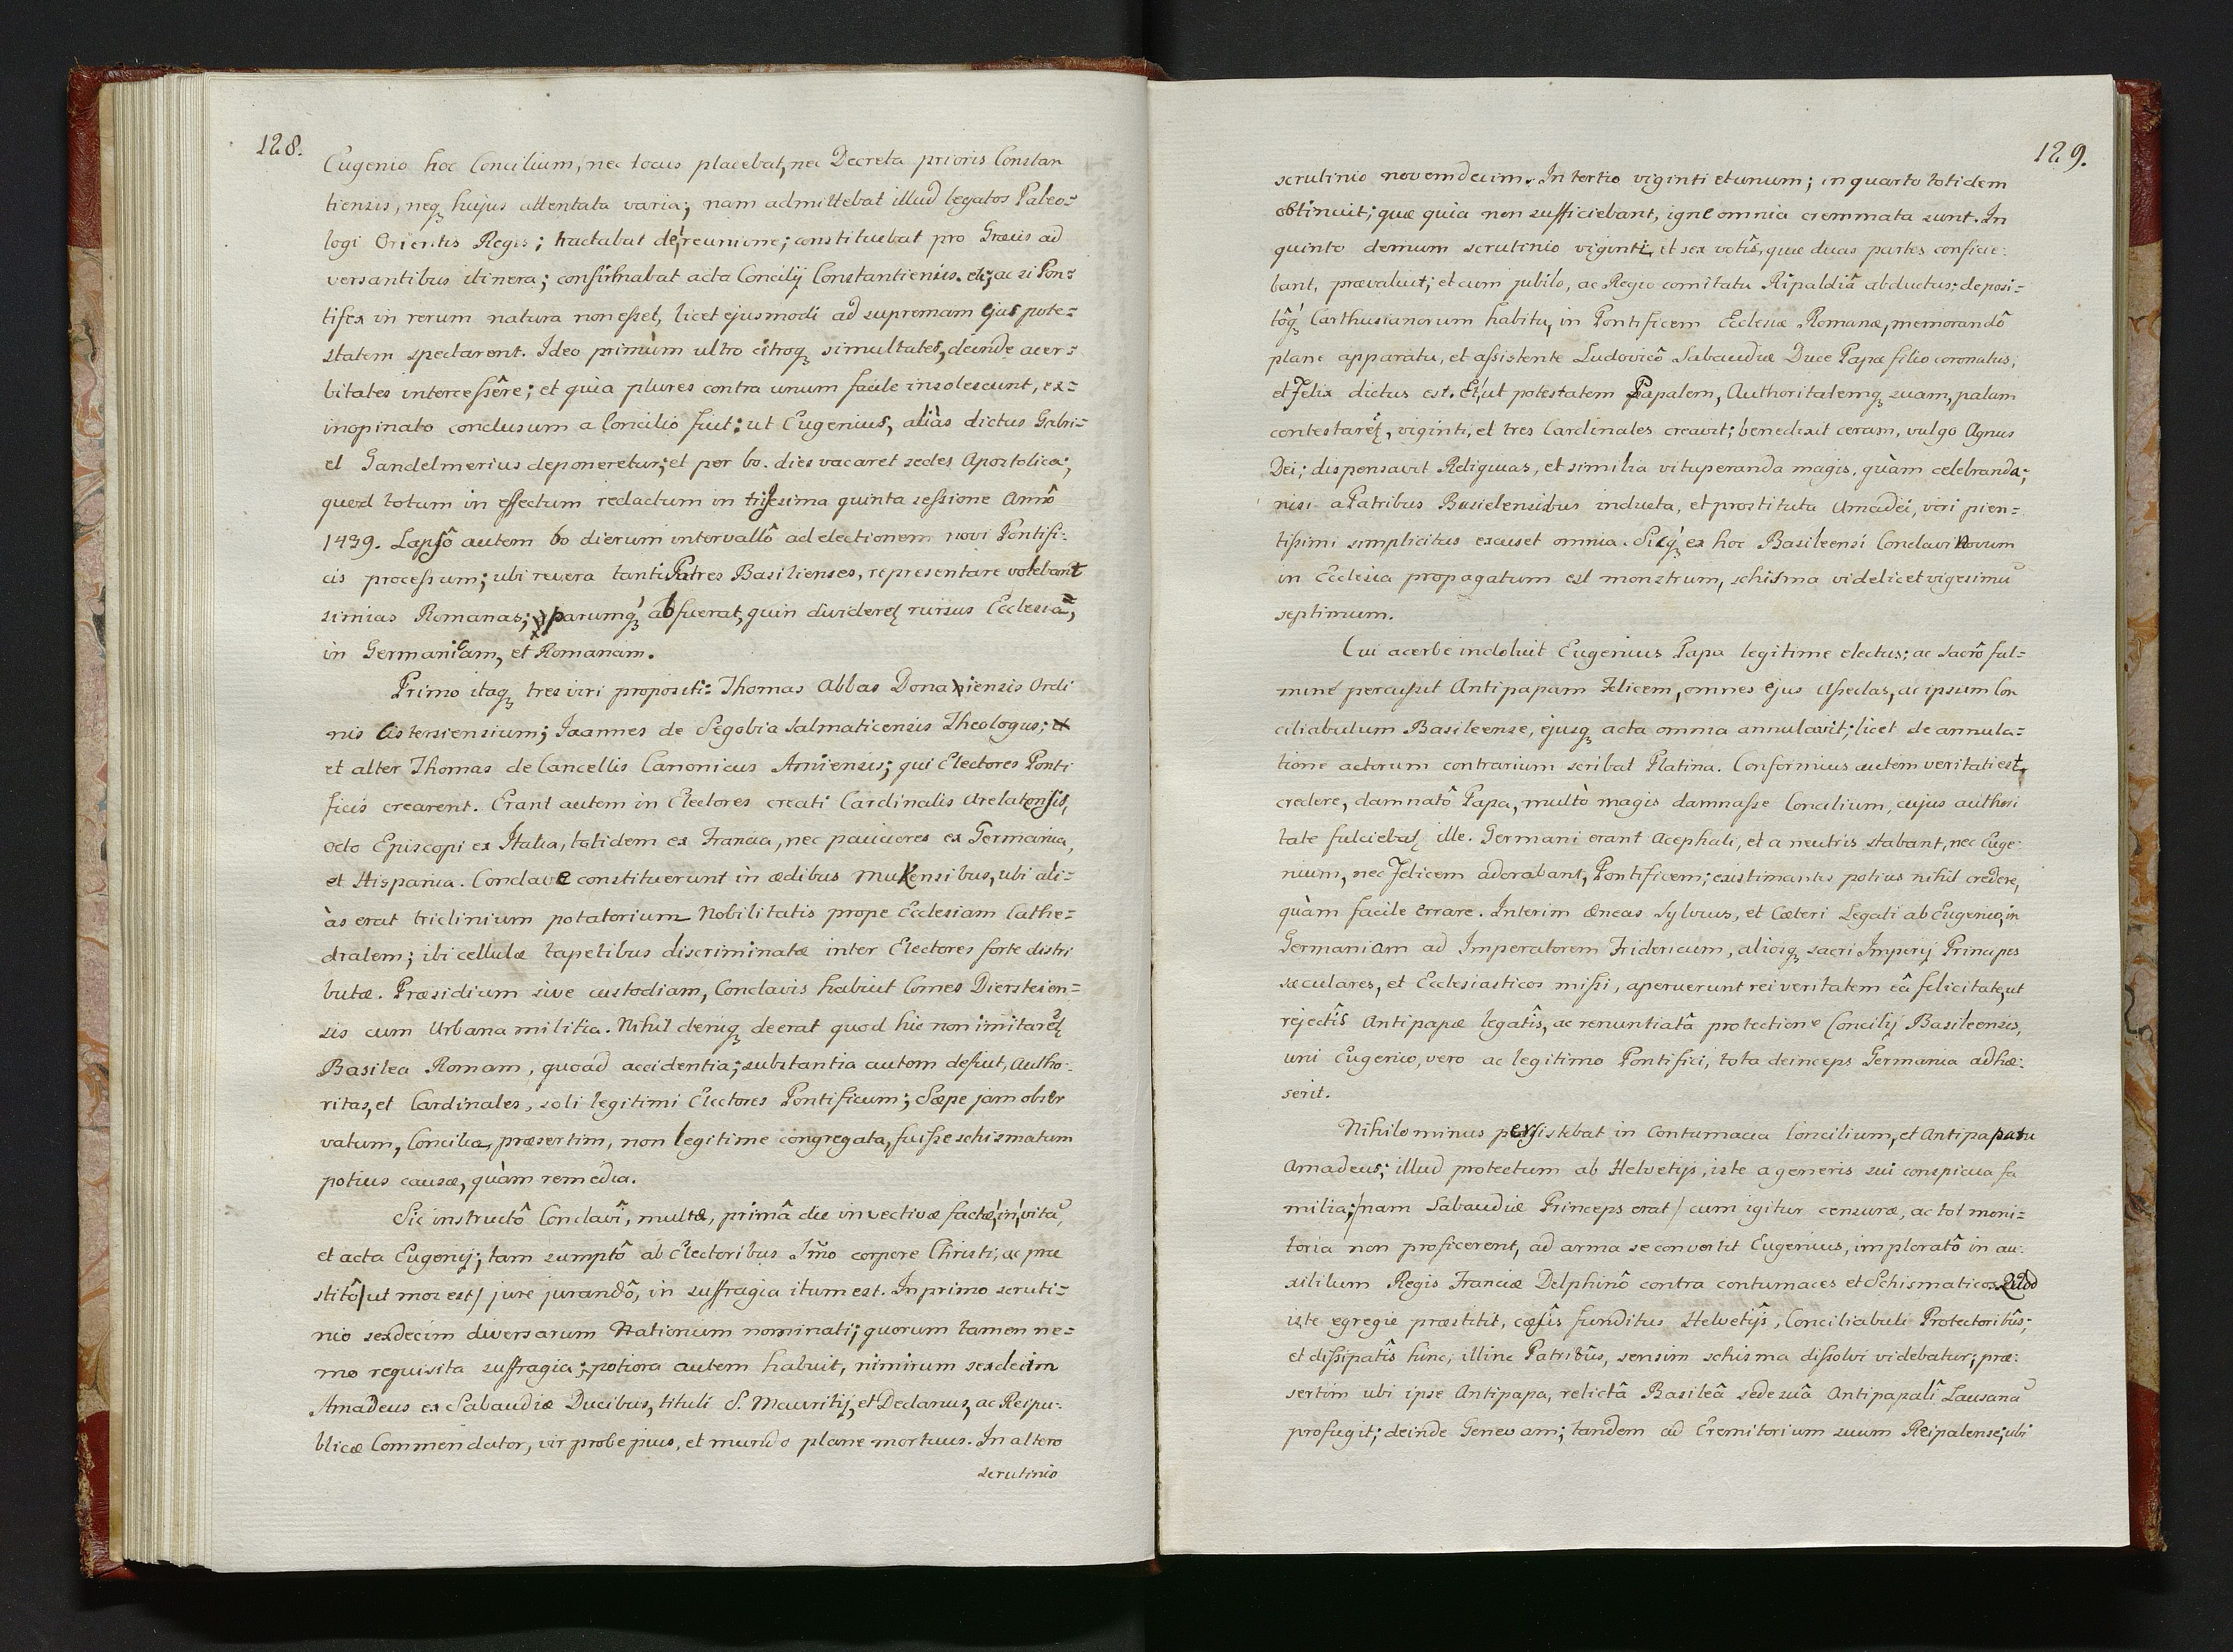 128.
Eugenio hoc Concilium, nec locus placebat, nec Decreta prioris Constan
tiensis, neq; hujus attentata varia; nam admittebat illud legatos Paleo=
logi Orientis Regis; tractabat de reunione; constituebat pro Græcis ad
versantibus itinera; confirmabat acta Concilij Constantiensis. etc; ac si Pon=
tifex in rerum natura non esset, licet ejusmodi ad supremam ejus pote=
statem spectarent. Ideo primùm ultro citroq; simultates, deinde acer=
bitates intercessêre; et quia plures contra unum facile insolescunt, ex=
inopinato conclusum a Concilio fuit: ut Eugenius, aliàs dictus Gabri=
el Gandelmerius deponeretur; et per 60. dies vacaret sedes Apostolica;
quod totum in effectum redactum in trigesima quinta sessione Annô
1439. Lapsô autem 60 dierum intervallô ad electionem novi Pontifi=
cis processum; ubi revera tanti Patres Basilienses, representare volebant
simias Romanas; parumq; abfuerat, quin divideret̃ rursus Ecclesia,
in Germanicam, et Romanam.
Primo itaq; tres viri propositi: Thomas Abbas Dona iensis Ordi
nis Cistersiensium; Joannes de Segobia Salmaticensis Theologus; et
et alter Thomas de Cancellis Canonicus Amiensis; qui Electores Ponti
ficis crearent. Erant autem in Electores creati Cardinalis Arelatensis,
octo Episcopi ex Italia, totidem ex Francia, nec pauciores ex Germania,
et Hispania. Conclave constituerunt in ædibus Mukensibus, ubi ali=
às erat triclinium potatorium Nobilitatis prope Ecclesiam Cathe=
dralem; ibi cellulæ tapetibus discriminatæ inter Electores forte distri
butæ. Præsidium sive custodiam, Conclavis habuit Comes Diersteien=
sis cum Urbana militia. Nihil deniq; deerat quod hic non imitaret̃
Basilea Romam, quoad accidentia; substantia autem defuit, Autho=
ritas, et Cardinales, soli legitimi Electores Pontificum; Sæpe jam obser
vatum, Concilia, præsertim, non legitime congregata, fuisse schismatum
potius causæ, quàm remedia.
Sic instructô Conclavî, multæ, primâ die invectivæ factæ, in, vitã,
et acta Eugenij; tam sumptô ab Electoribus Smo corpore Christi, ac præ
stitô /ut mos est/ jure jurandô, in suffragia itum est. In primo scruti=
nio sexdecim diversarum Nationum nominati; quorum tamen ne=
mo requisita suffragia; potiora autem habuit, nimirum sexdecim
Amadeus ex Sabaudiæ Ducibus, tituli S. Mauritij, et Decanus, ac Reipu=
blicæ Commendator, vir probe pius, et mundo plane mortuus. In altero
scrutinio
129.
scrutinio novemdecim. In tertio viginti et unum; in quarto totidem
obtinuit; quæ quia non sufficiebant, igne omnia cremmata sunt. In
quinto demum scrutinio viginti, et sex votîs, quæ duas partes conficie=
bant, prævaluit; et cum jubilo, ac Regio comitatu Ripaldiâ abductus; deposi=
tôq; Carthusianorum habitu, in Pontificem Ecclesiæ Romanæ, memorandô
plane apparatu, et assistente Ludovicô Sabaudiæ Duce Papæ filio coronatus,
et Felix dictus est. Et, ut potestatem Papalem, Authoritatemq; suam, palam
contestaret̃, viginti, et tres Cardinales creavit; benedixit ceram, vulgo Agnus
Dei; dispensavit Reliquias, et similia vituperanda magis, quàm celebranda;
nisi a Patribus Basielensibus inducta, et prostituta Amadei, viri pien=
tissimi simplicitas excuset omnia. Sicq; ex hoc Basileensi Conclavi novum
in Ecclesia propagatum est monstrum, schisma videlicet vigesimũ
septimum.
Cui acerbe indoluit Eugenius Papa legitime electus; ac sacrô ful=
mine percussit Antipapam Felicem, omnes ejus Asseclas, ac ipsum Con
ciliabulum Basileense, ejusq; acta omnia annulavit; licet de annula=
tione actorum contrarium scribat Platina. Conformius autem veritati est,
credere, damnatô Papa, multò magis damnasse Concilium, cujus authori
tate fulciebat̃ ille. Germani erant Acephali, et a neutris stabant, nec Euge=
nium, nec Felicem adorabant, Pontificem; existimantes potius nihil credere,
quàm facile errare. Interim Æneas Sylvius, et Cæteri Legati ab Eugenio, in
Germaniam ad Imperatorem Fridericum, aliosq; sacri Imperij Principes
sæculares, et Ecclesiasticos missi, aperuerunt rei veritatem eâ felicitate, ut
rejectîs Antipapæ legatîs, ac renuntiatâ protectione Concilij Basileensis,
uni Eugenio, vero ac legitimo Pontifici, tota deinceps Germania adhæ=
serit.
Nihilominus persistebat in Contumacia Concilium, et Antipapatu
Amadeus; illud protectum ab Helvetijs, iste a generis sui conspicua fa
milia; /nam Sabaudiæ Princeps erat/ cum igitur censuræ, ac tot moni=
toria non proficerent, ad arma se convertit Eugenius, imploratô in au=
xililum Regis Franciæ Delphinô contra contumaces et Schismaticos. Quod
iste egregie præstitit, cæsîs funditus Helvetijs, Conciliabuli Protectoribûs;
et dissipatîs hinc, illinc Patribûs, sensim schisma dissolvi videbatur; præ=
sertim ubi ipse Antipapa, relictâ Basileâ sede suâ Antipapalî Lausanã
profugit; deinde Genevam; tandem ad Eremitorium suum Reipalense; ubi